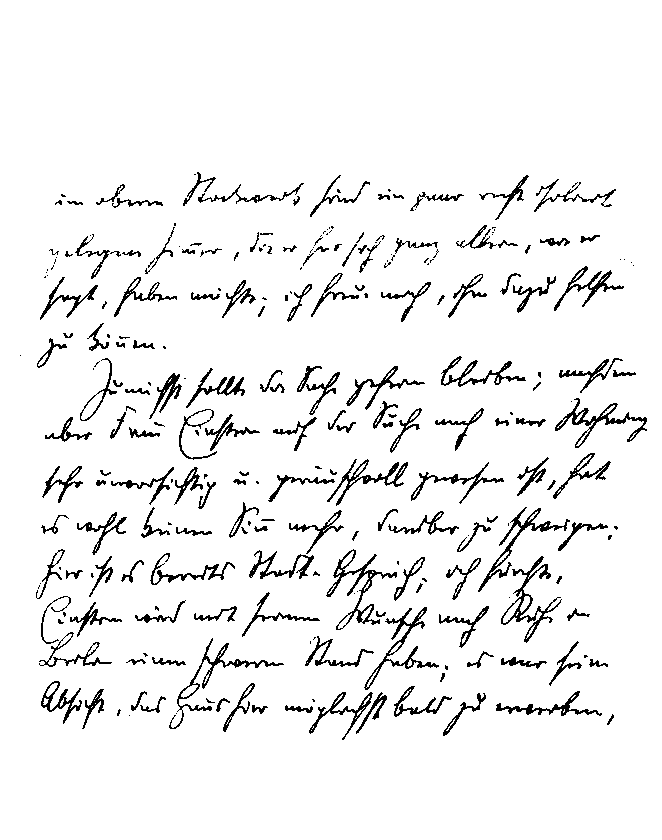 im oberen Stockwerk sind ein paar recht isoliert
gelegene Zimmer, die er für sich ganz allein, wie er
sagt, haben möchte; ich freue mich, ihm dazu helfen
zu können.
Zunächst sollte die Sache geheim bleiben; nachdem
aber Frau Einstein auf der Suche nach einer Wohnung
sehr unvorsichtig u. geräuschvoll gewesen ist, hat
es wohl keinen Sinn mehr, darüber zu schweigen;
hier ist es bereits Stadt-Gespräch; ich fürchte,
Einstein wird mit seinem Wunsche nach Ruhe in
Berlin einen schweren Stand haben; es war seine
Absicht, das Haus hier möglichst bald zu erwerben,